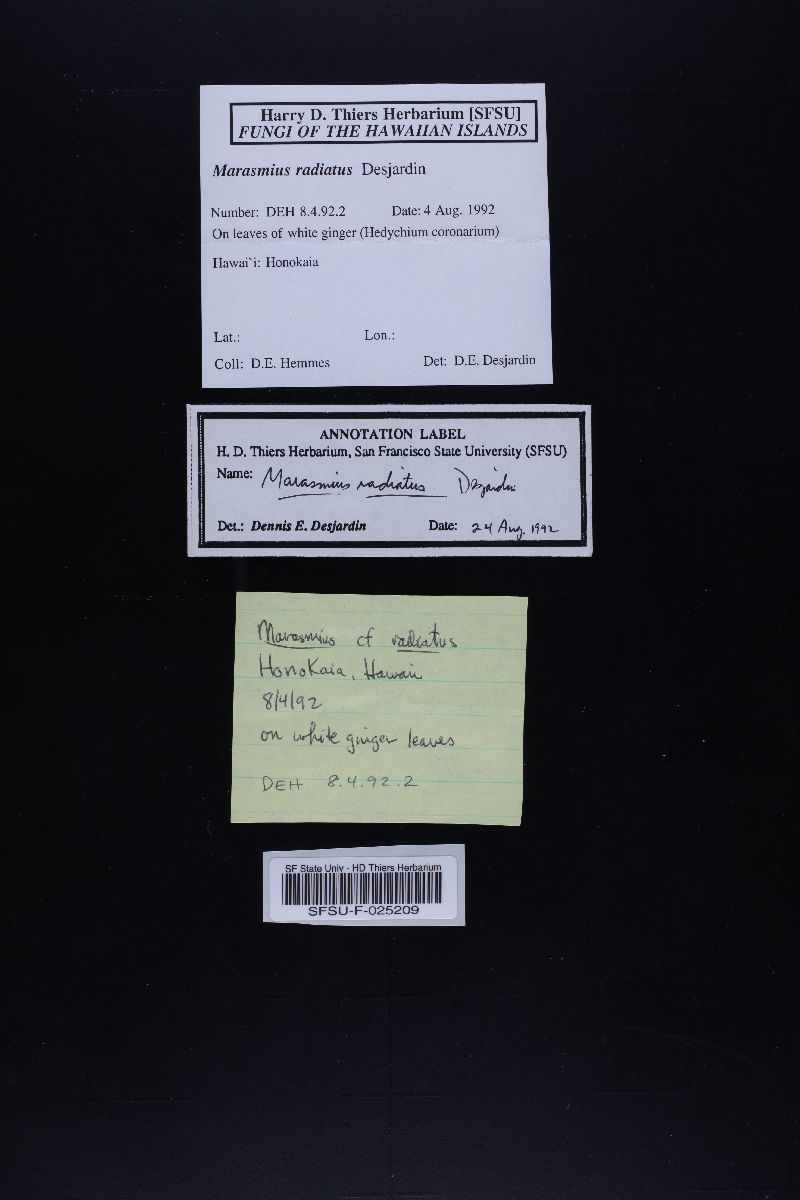 Harry D. Thiers Herbarium [SFSU]
FUNGI OF THE HAWAIIAN ISLANDS
Marasmius radiatus Desjardin
Number: DEH 8.4.92.2 Date: 4 Aug. 1992
On leaves of white ginger (Hedychium coronarium)
Hawai`i: Honokaia
Lat.: Lon.:
Coll: D.E. Hemmes Det: D.E. Desjardin
ANNOTATION LABEL
H. D. Thiers Herbarium, San Francisco State University (SFSU)
Name: Marasmius radiatus Desjardin
Det.: Dennis E. Desjardin Date: 24 Aug. 1992
Marasmius cf radiatus
Honokaia, Hawaii
8/4/92
on white ginger leaves
DEH 8.4.92.2
SF State Univ - HD Thiers Herbarium
SFSU-F-025209